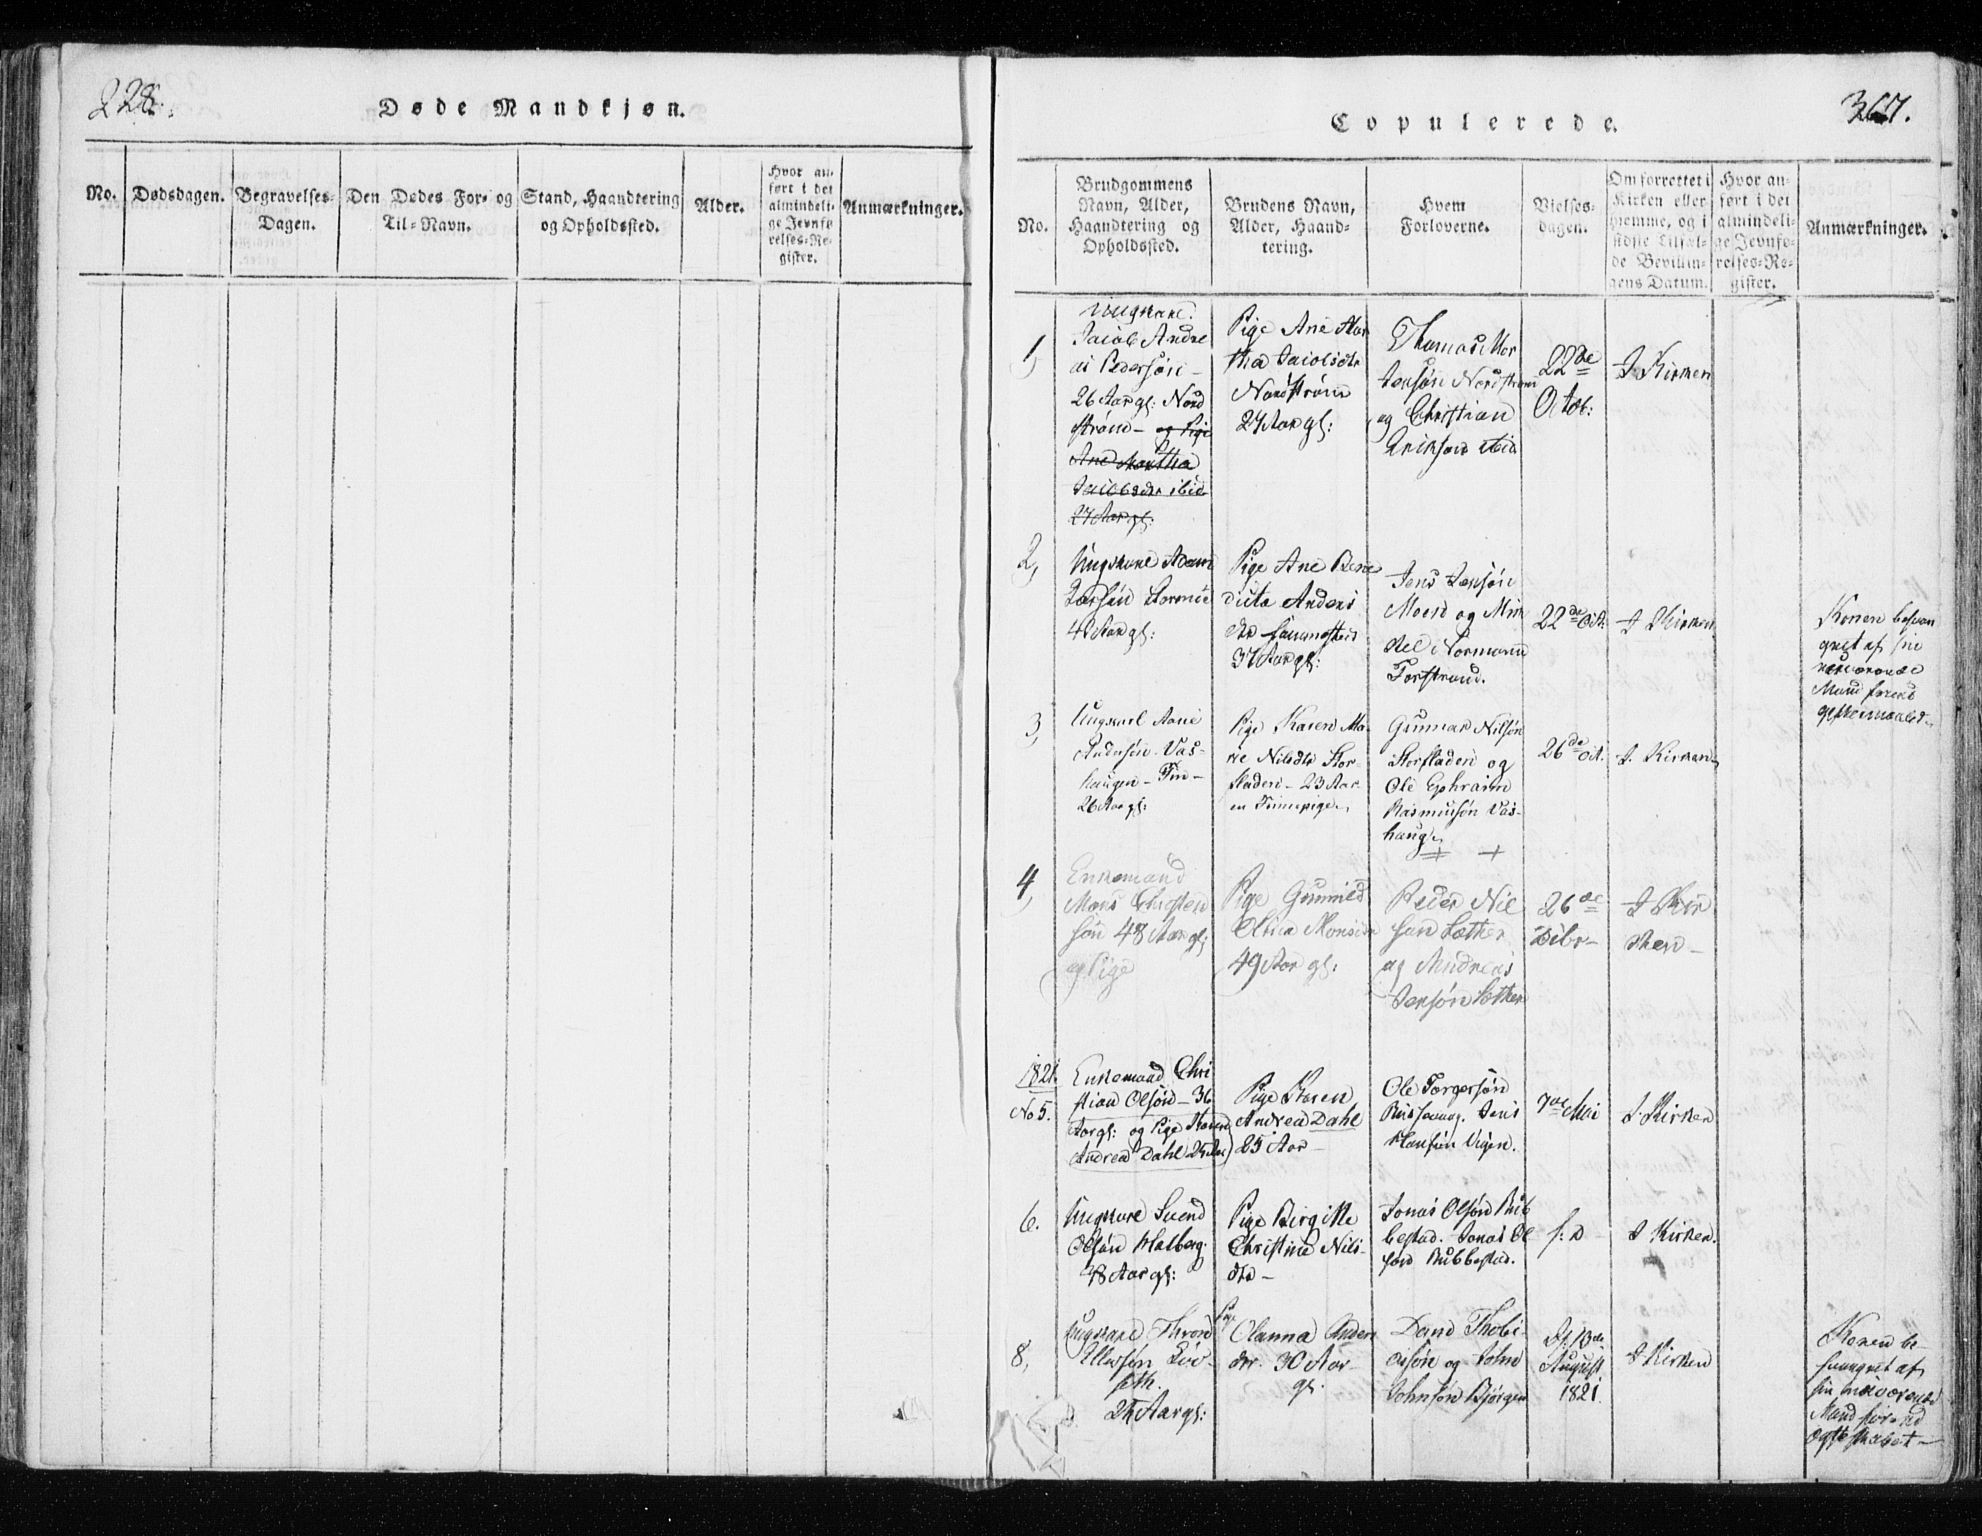 228.
Døde Mandkjøn.
No.
Dødsdagen.
Begravelses-
Dagen.
Den Dødes For- og
Til-Navn.
Stand, Haandtering
og Opholdssted.
Alder.
Hvor an-
ført i det
almindeli-
ge Jevnfø-
relses-Re-
gister.
Anmærkninger.
367.
Copulerede.
No.
Brudgommens
Navn, Alder,
Haandtering og
Opholdssted.
Brudens Navn,
Alder, Haand-
tering.
Hvem
Forloverne.
Vielses-
dagen.
Om forrettet i
Kirken eller
hjemme, og i
sidste Tilfæl-
de Bevillin-
gens Datum.
Hvor an-
ført i det
almindeli-
ge Jevnfø-
relses-Re-
gister.
Anmærkninger.
1,
Ungkarl
Jacob Andre
as Pedersøn -
26 Aar gl: Nord
strøm - og Pige
Ane Martha
Jacobsdr ibid
27 Aar gl:
Pige Ane Mar
tha Jacobsdr
Nordstrøm
27 Aar gl:
Thomas Mor
tensøn Nordstrøm
og Christian
Eriksøn ibid
22de
Octob:
I Kirken
2,
Ungkarl Adam
Larsøn
41 Aar gl:
Pige Ane Bene
dicta Anders
dr
37 Aar gl:
Jens Jensøn
Moen og Mik
kel Normann
Forstrand.
22de Oct.
I Kirken
Konen besvan
gret af sin
nuværende
Mand førend
Egteskabet
3,
Ungkarl Arne
Andersøn Vas-
haugen - Fin -
26 Aar gl:
Pige Karen Ma-
rie Nilsdtr Stor-
fladen - 23 Aar
en Finnepige
Gunnar Nilsøn
Storfladen og
Ole Ephraim
Rasmusøn Vas-
haug
26de Oct.
I Kirken
4,
Enkemand
Mons Christen
søn 48 Aar gl:
og Pige
Pige Gunnild
Monsdr
49 Aar gl:
Peder Niel
søn Sæther
og Andreas
Jensøn Sæther
26de
Decbr -
I Kir
ken -
1821.
No 5.
Enkemand Chri
stian Olsøn - 36
Aar gl: og Pige Karen
Andrea Dahl 25 Aar
Pige Karen
Andrea Dahl
25 Aar -
Ole Torgersøn
Jens
Hansøn Vigen.
7de Mai
I Kirken
6.
Ungkarl Svend
Olsøn Halberg
48 Aar gl:
Pige Birgitte
Christine Nils-
dr -
Jonas Olsøn Rub
bestad. Jonas Ol
søn Rubbestad.
s: D
I Kirken.
8,
Ungkarl Thron
Ellensøn Løv-
seth.
27 Aar gl:
Pige
Olanna Anders
dr. 30 Aar
gl.
Dand Thobi-
asøn og John
Johnsøn Bjørgen
D. 13de
August
1821.
I Kirken
Konen be-
svangret af
sin nuværende
Mand førend
Egteskabet -